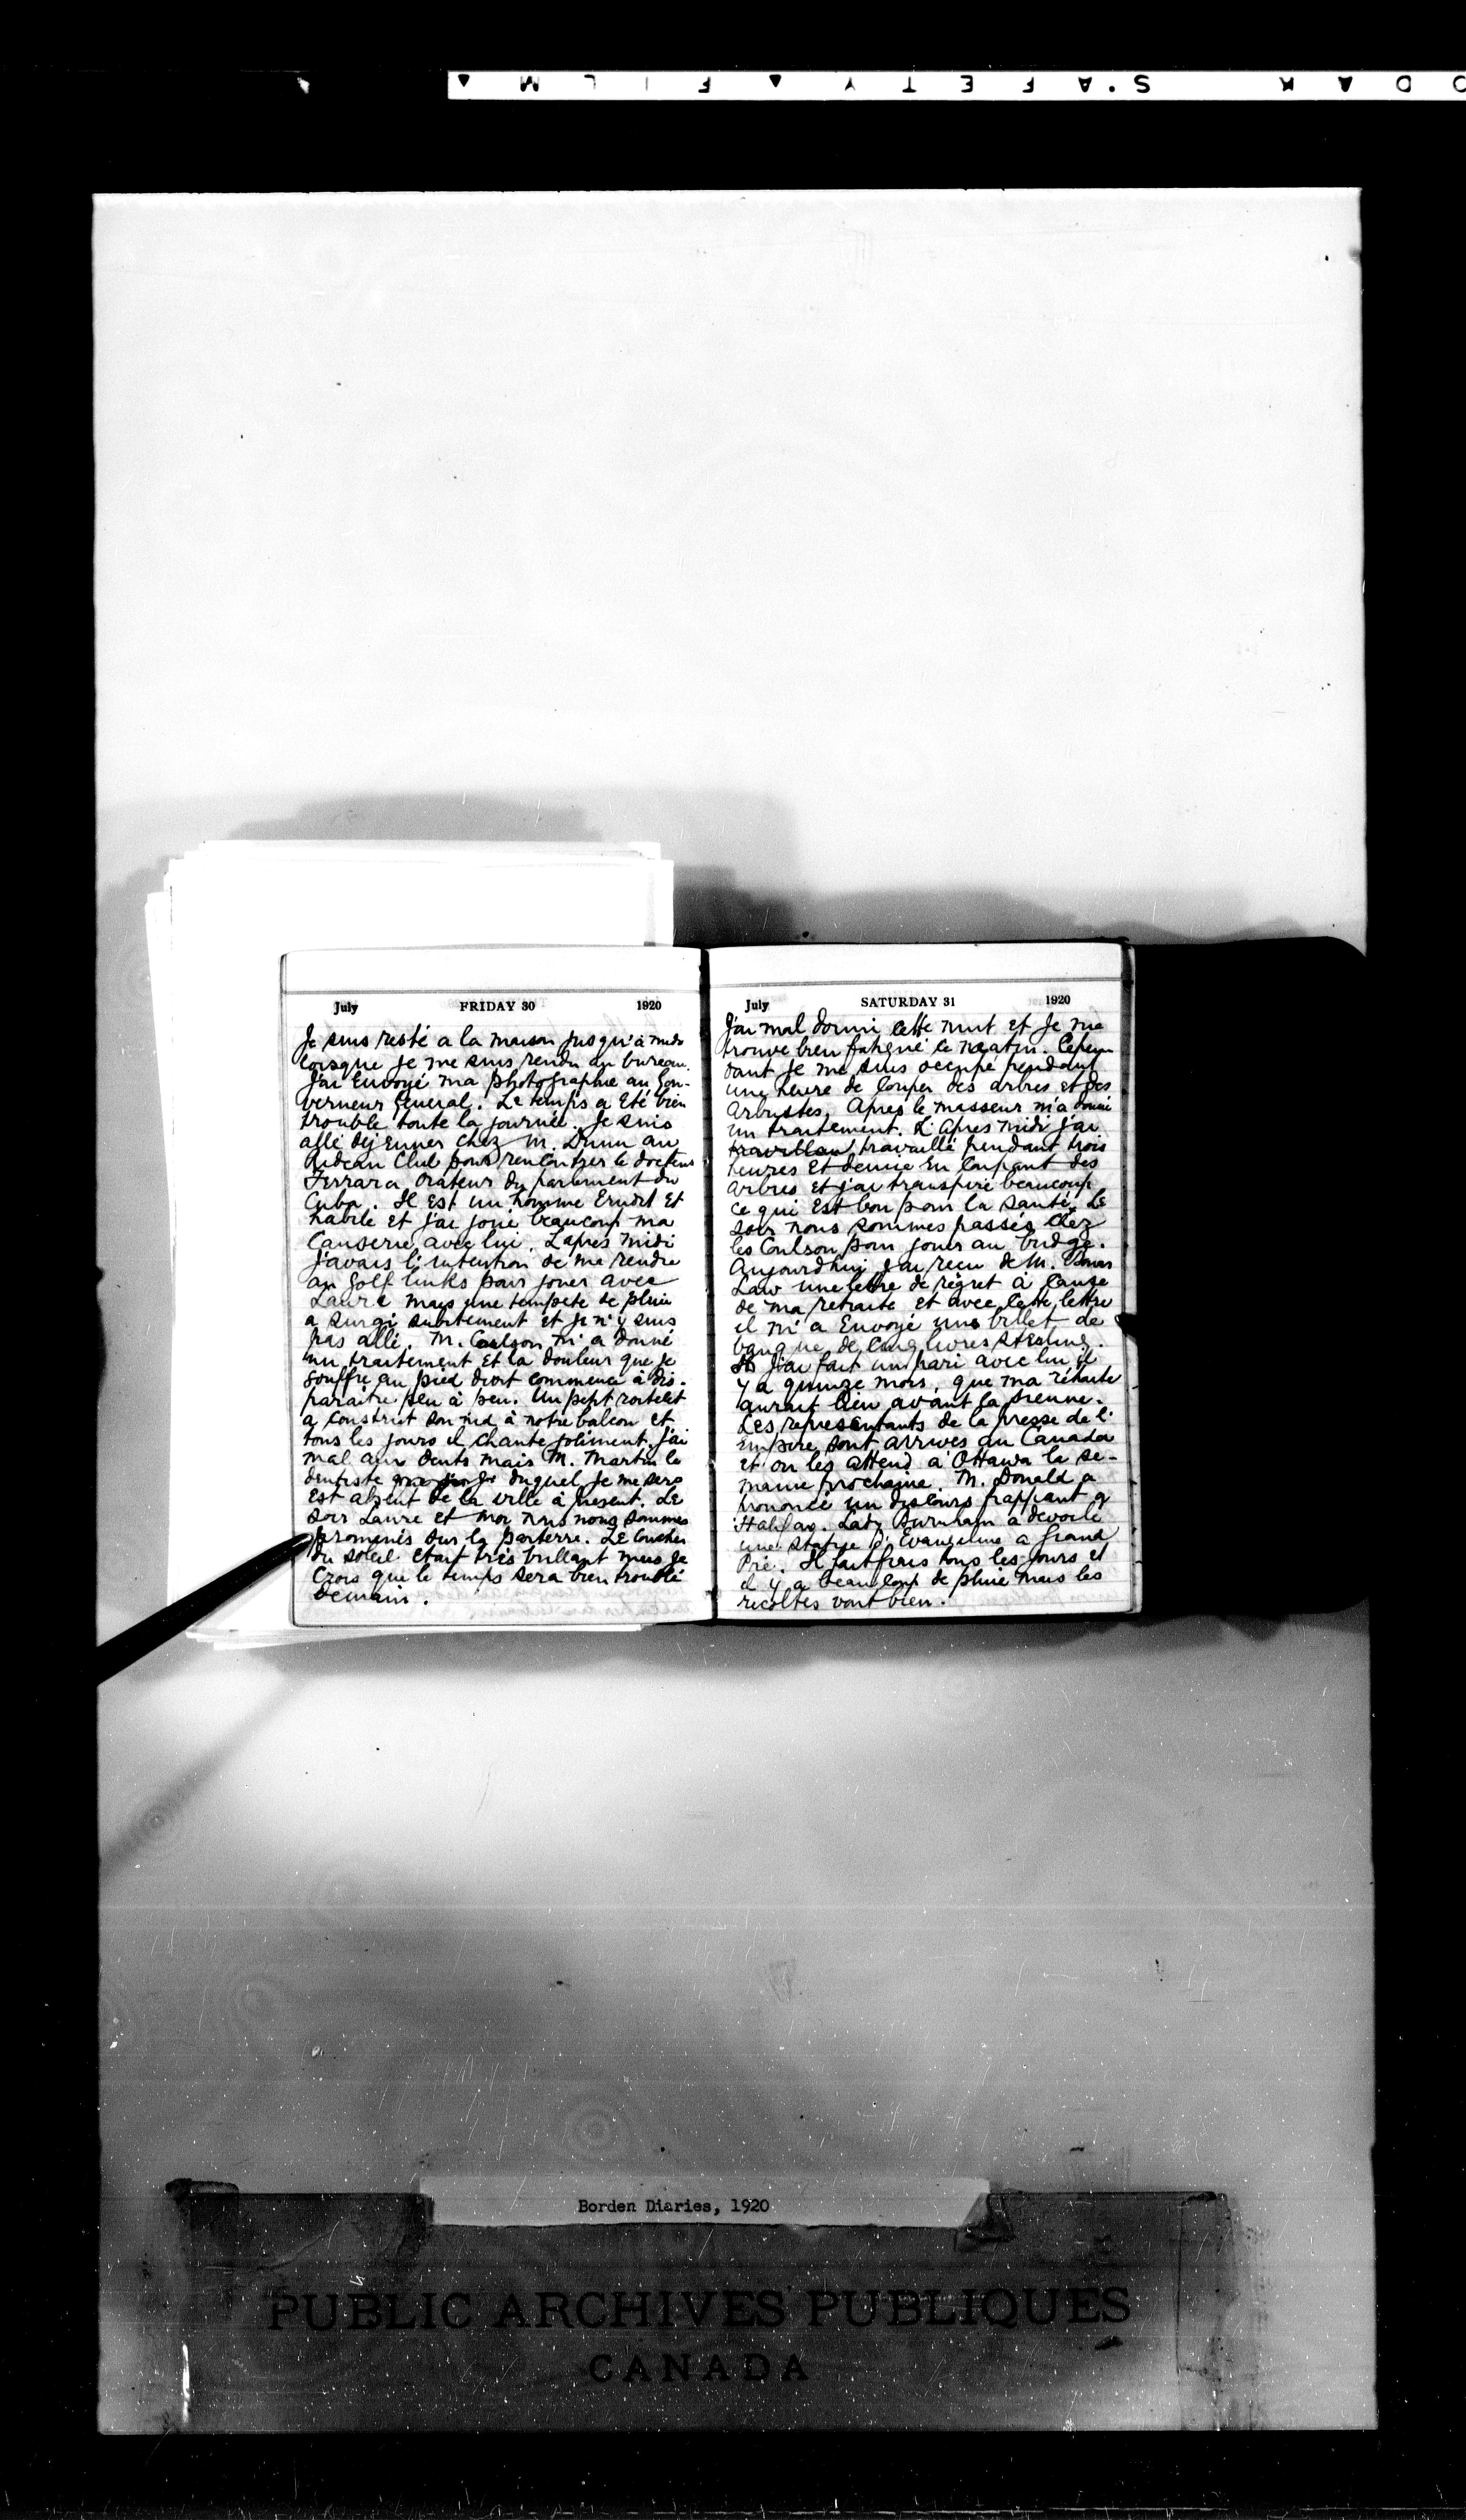 KODAK SAFETY FILM
July FRIDAY 30 1920
Je suis resté a la maison jusqu'à midi
lorsque je me suis rendu au bureau.
J'ai Envoyé ma photographie au Gou-
verneur General. Le temps a Eté bien
trouble toute la journée. Je suis
allé dejeuner chez M. Dunn au
Rideau Club pour rencontrer le docteur
Ferrara Orateur du parlement du
Cuba. Il Est un homme Erudit Et
habile et j'ai joui beaucoup ma
Causerie avec lui. L'apres midi
j'avais l'intention de me rendre
au Golf links pour jouer avec
Laura mais une tempete de pluie
a surgi subitement et je n'y suis
pas allé. M. Coulson m'a donné
un traitement Et la douleur que je
souffre au pied droit commence à dis-
paraitre peu à peu. Un petit roitelet
a construit son nid à notre balcon et
tous les jours il chante joliment. J'ai
mal aux dents mais M. Martin le
dentiste duquel je me sers
Est absent de la ville à present. Le
soir Laure et moi nous nous sommes
promenés sur la parterre. Le coucher
du soleil etait très brillant mais je
Crois que le temps sera bien troublé
demain.
July SATURDAY 31 1920
J'ai mal dormi cette nuit et je me
trouve bien fatigué ce matin. Cepen
dant je me suis occupé pendant
une heure de couper des arbres et des
Arbustes. Apres le masseur m'a donné
un traitement. L'Apres midi j'ai
travaillant travaillé pendant trois
heures Et demie En coupant des
arbres et j'ai transpiré beaucoup
ce qui Est bon pour la santé. Le
soir nous sommes passés chez
les Coulson pour jouer au bridge.
Aujourdhui j'ai recu de M. Bonar
Law une lettre de régret à cause
de ma retraite et avec cette lettre
il m'a Envoyé une billet de
banque de cinq livres sterling.
J'ai fait un pari avec lui il
y a quinze mois, que ma rétraite
aurait lieu avant la sienne.
Les representants de la presse de l'
Empire sont arrivés au Canada
et on les attend à Ottawa la se-
maine prochaine. M. Donald a
prononcé un discours frappant a
Halifax. Lady Burnham a devoilé
une statue d'Evangeline a Grand
Pré. Il fait frais tous les jours et
il y a beaucoup de pluie mais les
recoltes vont bien.
Borden Diaries, 1920
PUBLIC ARCHIVES PUBLIQUES
CANADA